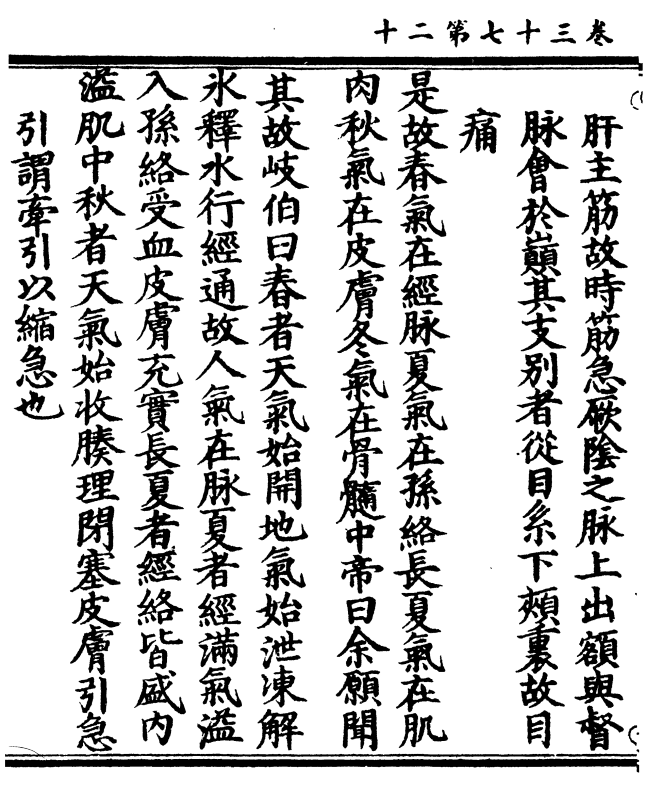 卷三十七第二十
肝主筋故時筋急厥陰之脉上出額與督
脉會於巔其支別者從目系下頰裏故目
痛
是故春氣在經脉夏氣在孫絡長夏氣在肌
肉秋氣在皮膚冬氣在骨髓中帝曰余願聞
其故岐伯曰春者天氣始開地氣始泄凍解
氷釋水行經通故人氣在脉夏者經滿氣溢
入孫絡受血皮膚充實長夏者經絡皆盛內
溢肌中秋者天氣始收腠理閉塞皮膚引急
引謂牽引以縮急也